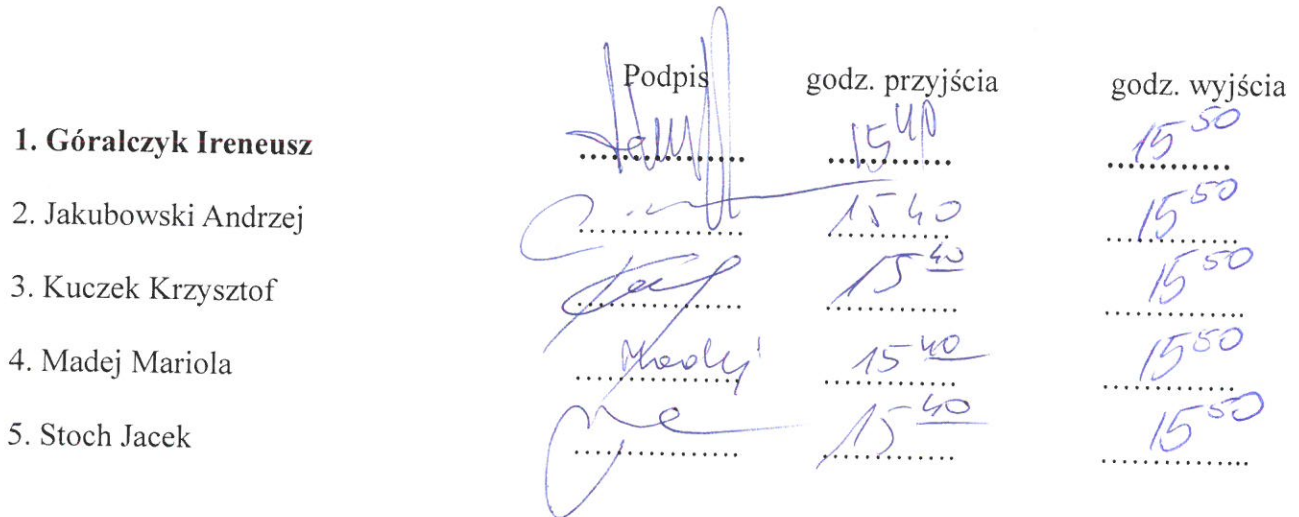 Podpis godz. przyjścia godz. wyjścia
1. Góralczyk Ireneusz 15 40 15 50
2. Jakubowski Andrzej 15 40 15 50
3. Kuczek Krzysztof 15 40 15 50
4. Madej Mariola Madej 15 40 15 50
5. Stoch Jacek 15 40 15 50